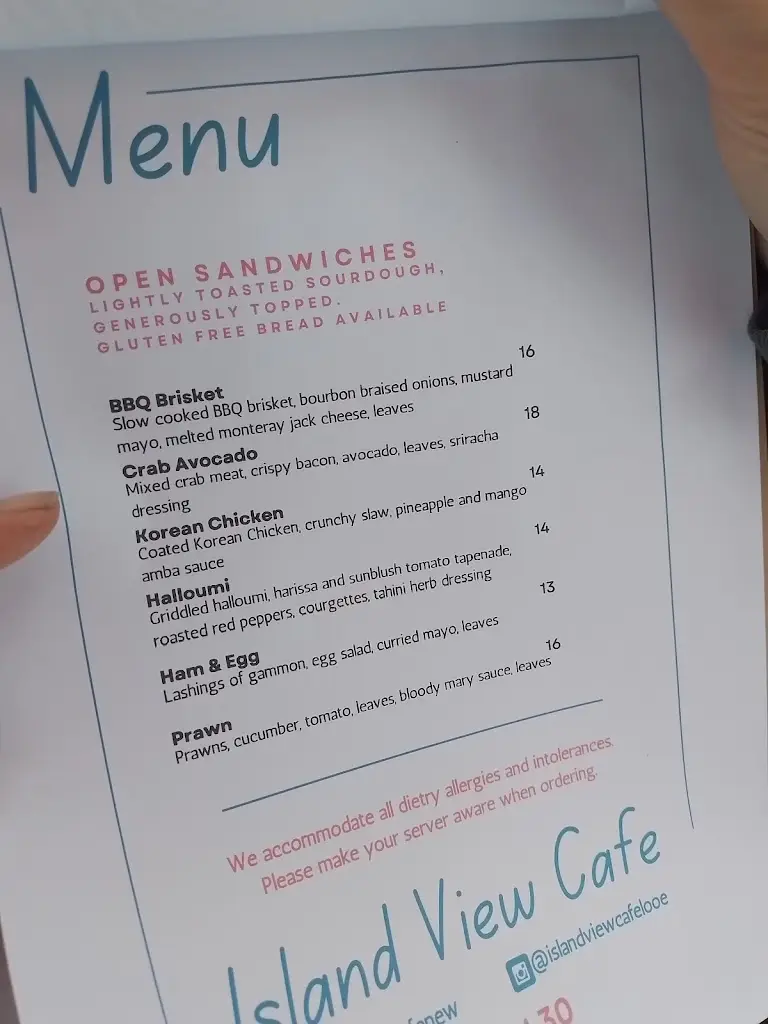 Menu
OPEN SANDWICHES
LIGHTLY TOASTED SOURDOUGH,
GENEROUSLY TOPPED.
GLUTEN FREE BREAD AVAILABLE
BBQ Brisket 16
Slow cooked BBQ brisket, bourbon braised onions, mustard
mayo, melted monteray jack cheese, leaves
Crab Avocado 18
Mixed crab meat, crispy bacon, avocado, leaves, sriracha
dressing
Korean Chicken 14
Coated Korean Chicken, crunchy slaw, pineapple and mango
amba sauce
Halloumi 14
Griddled halloumi, harissa and sunblush tomato tapenade,
roasted red peppers, courgettes, tahini herb dressing
Ham & Egg 13
Lashings of gammon, egg salad, curried mayo, leaves
Prawn 16
Prawns, cucumber, tomato, leaves, bloody mary sauce, leaves
We accommodate all dietry allergies and intolerances.
Please make your server aware when ordering.
Island View Cafe
@islandviewcafelooe